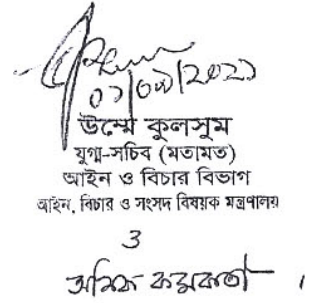 উম্মে কুলসুম
যুগ্ম-সচিব (মতামত)
আইন ও বিচার বিভাগ
আইন, বিচার ও সংসদ বিষয়ক মন্ত্রণালয়
ও
কর্মকর্তা ।